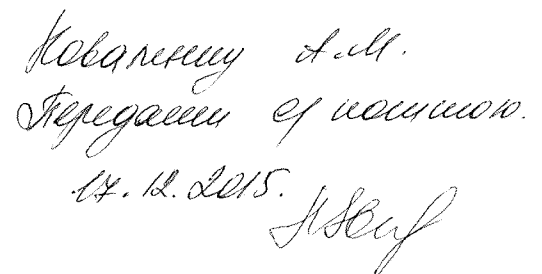 Коваленку А.М.
Передати ел поштою.
17.12.2015.